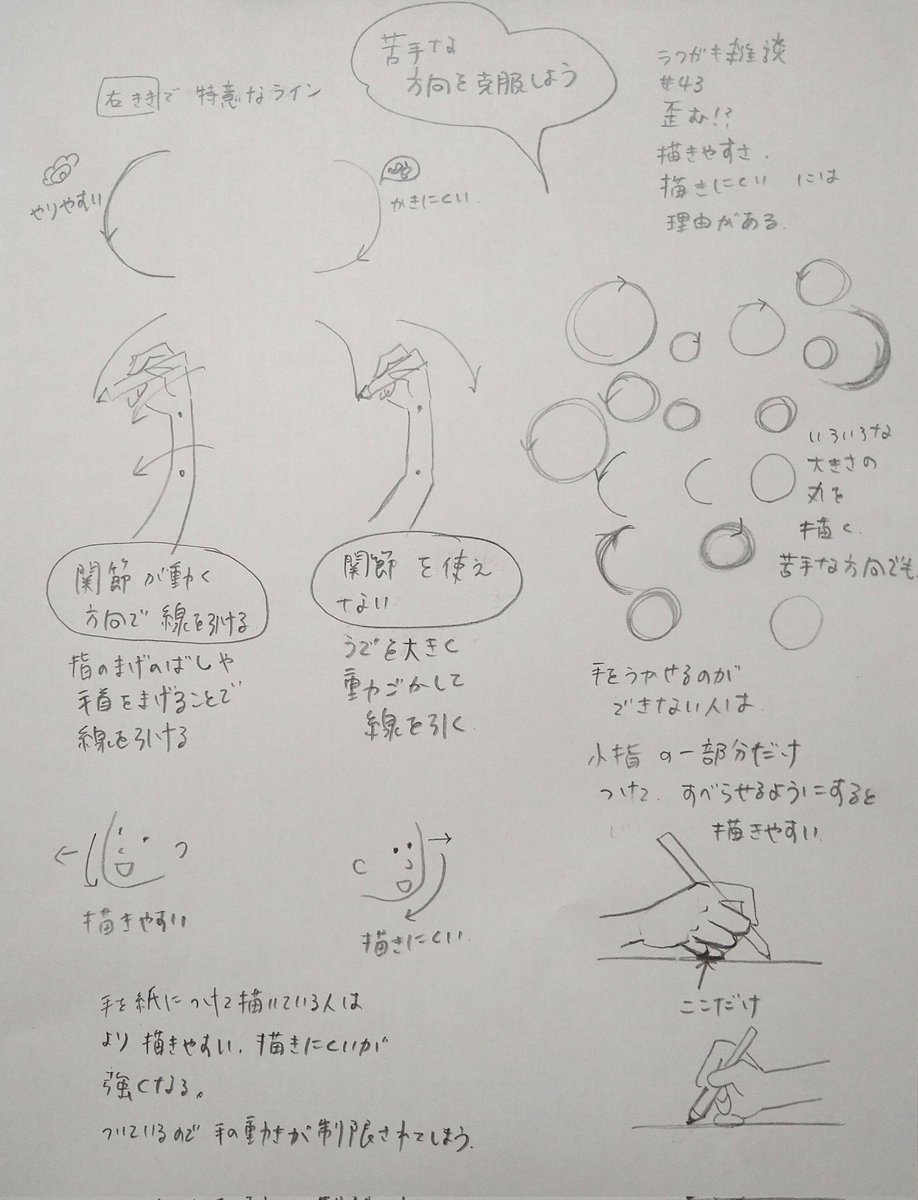 苦手な
方向を克服しよう
右ききで 特意なライン
やりやすい
かきにくい.
ラフがき雑談
#43
歪む!?
描きやすさ.
描きにくい には
理由がある.
関節が動く
方向で線を引ける
指のまげのばしや
手首をまげることで
線を引ける
関節を使え
ない
うでを大きく
動かして
線を引く.
いろいろな
大きさの
丸を
描く.
苦手な方向でも.
手をうかせるのが
できない人は.
小指の一部分だけ
つけて. すべらせるようにすると
描きやすい.
ここだけ
描きやすい
描きにくい.
手を紙につけて描いている人は
より 描きやすい. 描きにくいが
強くなる。
ついているので 手の動きが制限されてしまう.